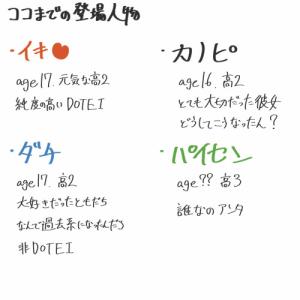 ココまでの登場人物
・イキ●
age17. 元気な高2
純度の高いDOTEI
・カノピ
age16. 高2
とても大切だった彼女
どうしてこうなったん?
・ダチ
age17. 高2
大好きだったともだち
なんで過去系になれんだろ
非DOTEI
・パイセン
age?? 高3
誰なのアンタ